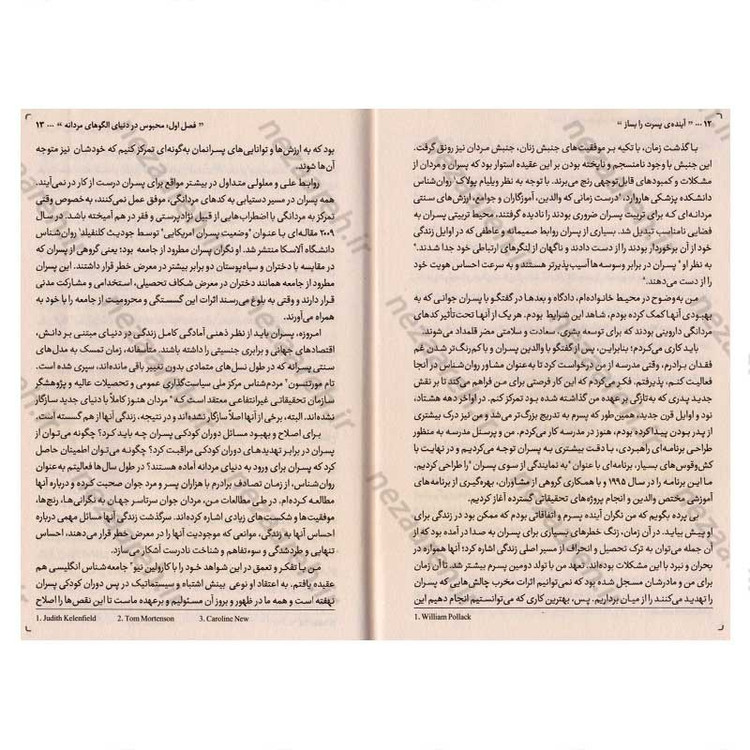 ۱۲ ... " آینده‌ی پسرت را بساز "
با گذشت زمان، با تکیه بر موفقیت‌های جنبش زنان، جنبش مردان نیز رونق گرفت.
این جنبش با وجود نامنسجم و ناپخته بودن بر این عقیده استوار بود که پسران و مردان از
مشکلات و کمبودهای قابل‌توجهی رنج می‌برند. با توجه به نظر ویلیام پولاک¹ روان‌شناس
دانشکده پزشکی هاروارد، "درست زمانی که والدین، آموزگاران و جوامع، ارزش‌های سنتی
مردانه‌ای که برای تربیت پسران ضروری بودند را نادیده گرفتند، محیط تربیتی پسران به
فضایی نامناسب تبدیل شد. بسیاری از پسران روابط صمیمانه و عاطفی که در اوایل زندگی
خود از آن برخوردار بودند را از دست دادند و ناگهان از لنگرهای ارتباطی خود جدا شدند."
به نظر او "پسران در برابر وسوسه‌ها آسیب‌پذیرتر هستند و به سرعت احساس هویت خود
را از دست می‌دهند."
من به‌وضوح در محیط خانواده‌ام، دادگاه و بعدها در گفتگو با پسران جوانی که به
بهبودی آنها کمک کرده بودم، شاهد این شرایط بودم. هر یک از آنها تحت‌تأثیر کدهای
مردانگی داروینی بودند که برای توسعه بشری، سعادت و سلامتی مضر قلمداد می‌شوند.
باید کاری می‌کردم؛ بنابراین، پس از گفتگو با والدین پسران و با کم‌رنگ‌تر شدن غم
فقدان برادرم، وقتی مدرسه از من درخواست کرد تا به‌عنوان مشاور روان‌شناس در آنجا
فعالیت کنم، پذیرفتم. فکر می‌کردم که این کار فرصتی برای من فراهم می‌کند تا بر نقش
جدید پدری که به‌تازگی بر عهده من گذاشته شده بود تمرکز کنم. در اواخر دهه هشتاد،
نود و اوایل قرن جدید، همین‌طور که پسرم به تدریج بزرگ‌تر می‌شد و من نیز درک بیشتری
از پدر بودن پیدا کرده بودم، هنوز در مدرسه کار می‌کردم. من و پرسنل مدرسه به منظور
طراحی برنامه‌ای راهبردی، با دقت بیشتری به پسران توجه می‌کردیم و در نهایت با
کش‌وقوس‌های بسیار، برنامه‌ای با عنوان "به نمایندگی از سوی پسران" را طراحی کردیم.
ما این برنامه را در سال ۱۹۹۵ و با همکاری گروهی از مشاوران، بهره‌گیری از برنامه‌های
آموزشی مختص والدین و انجام پروژه‌های تحقیقاتی گسترده آغاز کردیم.
بی پرده بگویم که من نگران آینده پسرم و اتفاقاتی بودم که ممکن بود در زندگی برای
او پیش بیاید. در آن زمان، زنگ خطرهای بسیاری برای پسران به صدا در آمده بود که از
آن جمله می‌توان به ترک تحصیل و انحراف از مسیر اصلی زندگی اشاره کرد؛ آنها همواره در
بحران و نبرد با این مشکلات بوده‌اند. تعهد من با تولد دومین پسرم بیشتر شد. تا آن زمان
برای من و مادرشان مسجل شده بود که نمی‌توانیم اثرات مخرب چالش‌هایی که پسران
را تهدید می‌کنند را از میان برداریم. پس، بهترین کاری که می‌توانستیم انجام دهیم این
1. William Pollack
" فصل اول؛ محبوس در دنیای الگوهای مردانه " ... ۱۳
بود که به ارزش‌ها و توانایی‌های پسرانمان به‌گونه‌ای تمرکز کنیم که خودشان نیز متوجه
آن‌ها شوند.
روابط علی و معلولی متداول در بیشتر مواقع برای پسران درست از کار در نمی‌آیند.
همه پسران در مسیر دستیابی به کدهای مردانگی، موفق عمل نمی‌کنند، به‌خصوص وقتی
تمرکز به مردانگی با اضطراب‌هایی از قبیل نژادپرستی و فقر در هم آمیخته باشد. در سال
۲۰۰۹ مقاله‌ای با عنوان "وضعیت پسران امریکایی" توسط جودیت کلنفیلد¹ روان‌شناس
دانشگاه آلاسکا منتشر شد. او نگران پسران مطرود از جامعه بود؛ یعنی گروهی از پسران که
در مقایسه با دختران و سیاه‌پوستان دو برابر بیشتر در معرض خطر قرار داشتند. این پسران
مطرود از جامعه همانند دختران در معرض شکاف تحصیلی، استخدامی و مشارکت مدنی
قرار دارند و وقتی به بلوغ می‌رسند اثرات این گسستگی و محرومیت از جامعه را با خود به
همراه می‌آورند.
امروزه، پسران باید از نظر ذهنی آمادگی کامل زندگی در دنیای مبتنی بر دانش،
اقتصادهای جهانی و برابری جنسیتی را داشته باشند. متأسفانه، زمان تمسک به مدل‌های
سنتی پسرانه که در طول نسل‌های متمادی بدون تغییر باقی مانده‌اند، سپری شده است.
تام مورتنسون² مردم‌شناس مرکز ملی سیاست‌گذاری عمومی و تحصیلات عالیه و پژوهشگر
سازمان تحقیقاتی غیرانتفاعی معتقد است که "مردان هنوز کاملاً با دنیای جدید سازگار
نشده‌اند، البته، برخی از آنها اصلاً سازگار نشده‌اند و در نتیجه، زندگی آنها از هم گسسته است."
برای اصلاح و بهبود مسائل دوران کودکی پسران چه باید کرد؟ چگونه می‌توان از
پسران در برابر تهدیدهای دوران کودکی مراقبت کرد؟ چگونه می‌توان اطمینان حاصل
کرد که پسران برای ورود به دنیای مردانه آماده هستند؟ در طول سال‌ها فعالیتم به‌عنوان
روان‌شناس، از زمان تصادف برادرم با هزاران پسر و مرد جوان صحبت کرده و درباره آنها
مطالعه کرده‌ام. در طی مطالعات من، مردان جوان سرتاسر جهان به نگرانی‌ها، رنج‌ها،
موفقیت‌ها و شکست‌های زیادی اشاره کرده‌اند. سرگذشت زندگی آنها مسائل مهمی درباره
احساس آنها به زندگی، موانعی که موجودیت آنها را در معرض خطر قرار می‌دهند، احساس
تنهایی و طردشدگی و سوءتفاهم و شناخت نادرست آشکار می‌سازد.
من با تفکر و تعمق در این شواهد خود را با کارولین نیو³ جامعه‌شناس انگلیسی هم
عقیده یافتم. به اعتقاد او نوعی بینش اشتباه و سیستماتیک در پس دوران کودکی پسران
نهفته است و همه ما در ظهور و بروز آن مسئولیم و برعهده ماست تا این نقص‌ها را اصلاح
1. Judith Kelenfield 2. Tom Mortenson 3. Caroline New
nezareh.ir